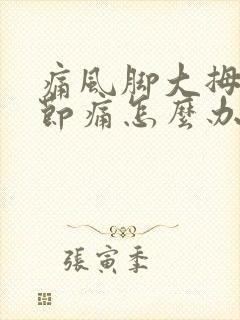 痛風脚大拇
節痛怎麼办
張寅季